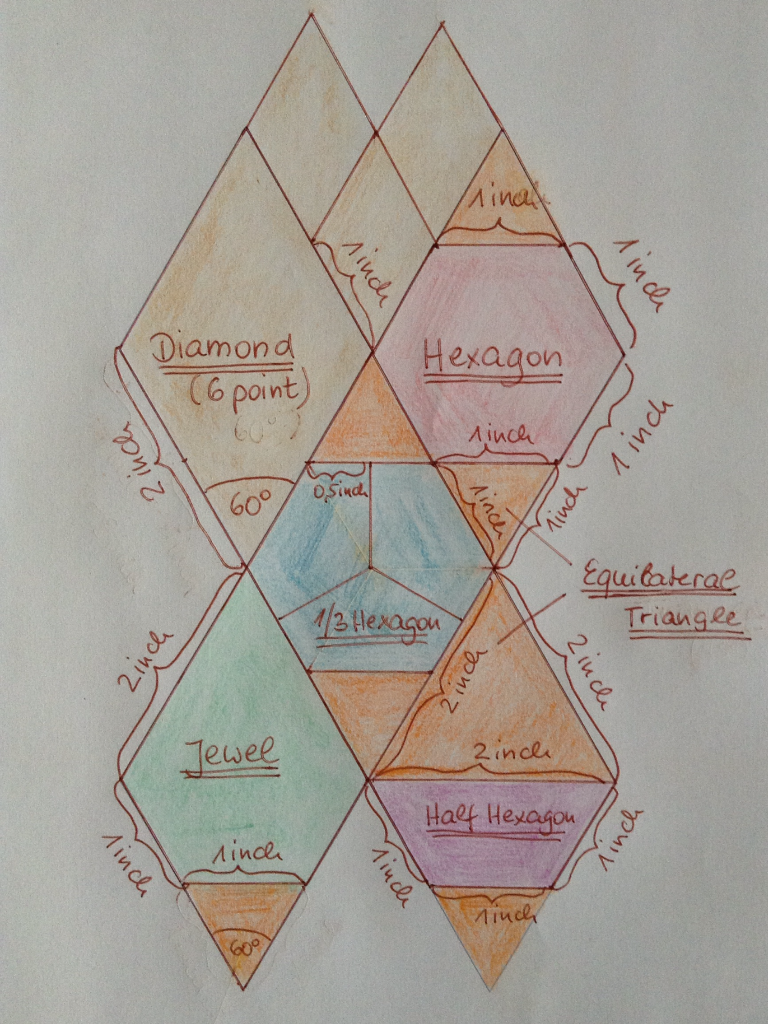 1 inch
1 inch
1 inch
Diamond
(6 point)
60°
Hexagon
1 inch
1 inch
2 inch
60°
0,5 inch
1 inch
1 inch
Equilateral
Triangle
1/3 Hexagon
2 inch
2 inch
2 inch
Jewel
2 inch
Half Hexagon
1 inch
1 inch
1 inch
1 inch
1 inch
60°